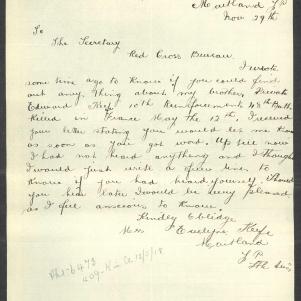 Maitland Y P
Nov 29th
To
The Secretary
Red Cross Bureau
I wrote
some time ago to know if you could find
out any thing about my brother, Private
Edward Keefe 10th Reinforcements 48th Batt
Killed in France May the 12th, I received
your letter stating you would let me know
as soon as you got word. Up till now
I had not heard anything and I thought
I would just write a few lines to
know if you had heard yourself. Should
you hear later I would be very pleased
as I feel anxious to know.
Kindly Oblidge
Mrs Evelyne Keefe
Maitland
Y P